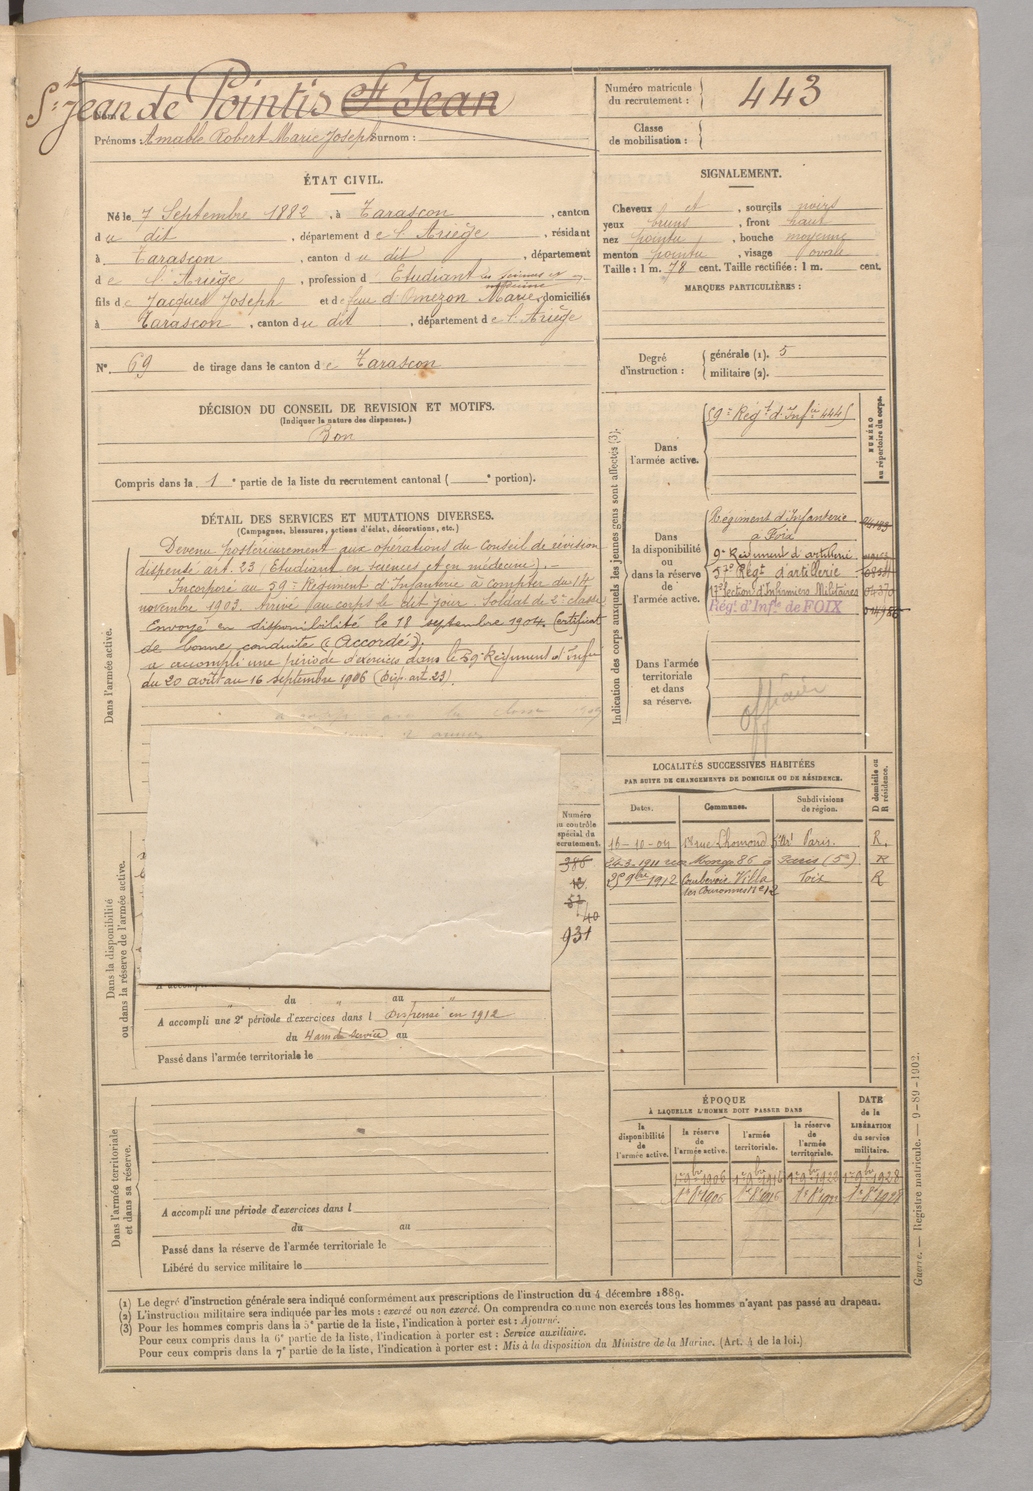 St Jean de Pointis St Jean
Prénoms : Amable Robert Marie Joseph Surnom :
ÉTAT CIVIL.
Né le 7 Septembre 1882, à Tarascon, canton
du dit, département de l'Ariège, résidant
à Tarascon, canton du dit, département
de l'Ariège, profession d Etudiant en sciences et en
médecine
fils de Jacques Joseph et de feue d'Omezon Marie, domiciliés
à Tarascon, canton du dit, département de l'Ariège
N°. 69 de tirage dans le canton de Tarascon
DÉCISION DU CONSEIL DE REVISION ET MOTIFS.
(Indiquer la nature des dispenses.)
Bon
Compris dans la 1e partie de la liste du recrutement cantonal ( e portion).
DÉTAIL DES SERVICES ET MUTATIONS DIVERSES.
(Campagnes, blessures, actions d'éclat, décorations, etc.)
Dans l'armée active.
Devenu postérieurement aux opérations du conseil de révision
dispensé art. 23 (Etudiant en sciences et en médecine). -
Incorporé au 59e Régiment d'Infanterie à compter du 14
novembre 1903. Arrivé au corps le dit jour. Soldat de 2e classe
Envoyé en disponibilité le 18 septembre 1904. Certificat
de bonne conduite "Accordé".
a accompli une période d'exercices dans le 59e Régiment d'Infie
du 20 août au 16 septembre 1906 (Disp. art. 23).
Dans la disponibilité
ou dans la réserve de l'armée active.
Numéro
au contrôle
spécial du
recrutement.
386
12
57
40
931
du " au "
A accompli une 2e période d'exercices dans l Dispensé en 1912
du 4 ans de service au
Passé dans l'armée territoriale le
Dans l'armée territoriale
et dans sa réserve.
A accompli une période d'exercices dans l
du au
Passé dans la réserve de l'armée territoriale le
Libéré du service militaire le
Numéro matricule
du recrutement : 443
Classe
de mobilisation :
SIGNALEMENT.
Cheveux et, sourcils noirs
yeux bruns, front haut
nez pointu, bouche moyenne
menton pointu, visage ovale
Taille : 1 m. 78 cent. Taille rectifiée : 1 m. cent.
MARQUES PARTICULIÈRES :
Degré
d'instruction :
générale (1). 5
militaire (2).
Indication des corps auxquels les jeunes gens sont affectés (3).
NUMÉRO
au répertoire du corps.
Dans
l'armée active.
59e Régt d'Infie 4445
Dans
la disponibilité
ou
dans la réserve
de
l'armée active.
Régiment d'Infanterie
à Foix
9e Régiment d'artillerie
57e Régt d'artillerie
17e Section d'Infirmiers Militaires
Régt d'Infie de FOIX
Dans l'armée
territoriale
et dans
sa réserve.
officier
LOCALITÉS SUCCESSIVES HABITÉES
PAR SUITE DE CHANGEMENTS DE DOMICILE OU DE RÉSIDENCE.
Dates. Communes. Subdivisions de région. D domicile ou R résidence.
16-10-04 rue Lhomond 5e Arrt Paris. R.
1911 rue Monge 86 à Paris (5e) R
25 9bre 1912 Courbevoie Villa Foix R
des Couronnes N° 12
ÉPOQUE
À LAQUELLE L'HOMME DOIT PASSER DANS
DATE
de la
LIBÉRATION
du service
militaire.
la disponibilité de l'armée active. la réserve de l'armée active. l'armée territoriale. la réserve de l'armée territoriale.
1er 9bre 1906 1er 9bre 1916 1er 9bre 1922 1er 9bre 1928
1er 8bre 1906 1er 8bre 1916 1er 8bre 1922 1er 8bre 1928
Guerre. — Registre matricule. — 9-89-1902.
(1) Le degré d'instruction générale sera indiqué conformément aux prescriptions de l'instruction du 4 décembre 1889.
(2) L'instruction militaire sera indiquée par les mots : exercé ou non exercé. On comprendra comme non exercés tous les hommes n'ayant pas passé au drapeau.
(3) Pour les hommes compris dans la 5e partie de la liste, l'indication à porter est : Ajourné.
Pour ceux compris dans la 6e partie de la liste, l'indication à porter est : Service auxiliaire.
Pour ceux compris dans la 7e partie de la liste, l'indication à porter est : Mis à la disposition du Ministre de la Marine. (Art. 4 de la loi.)